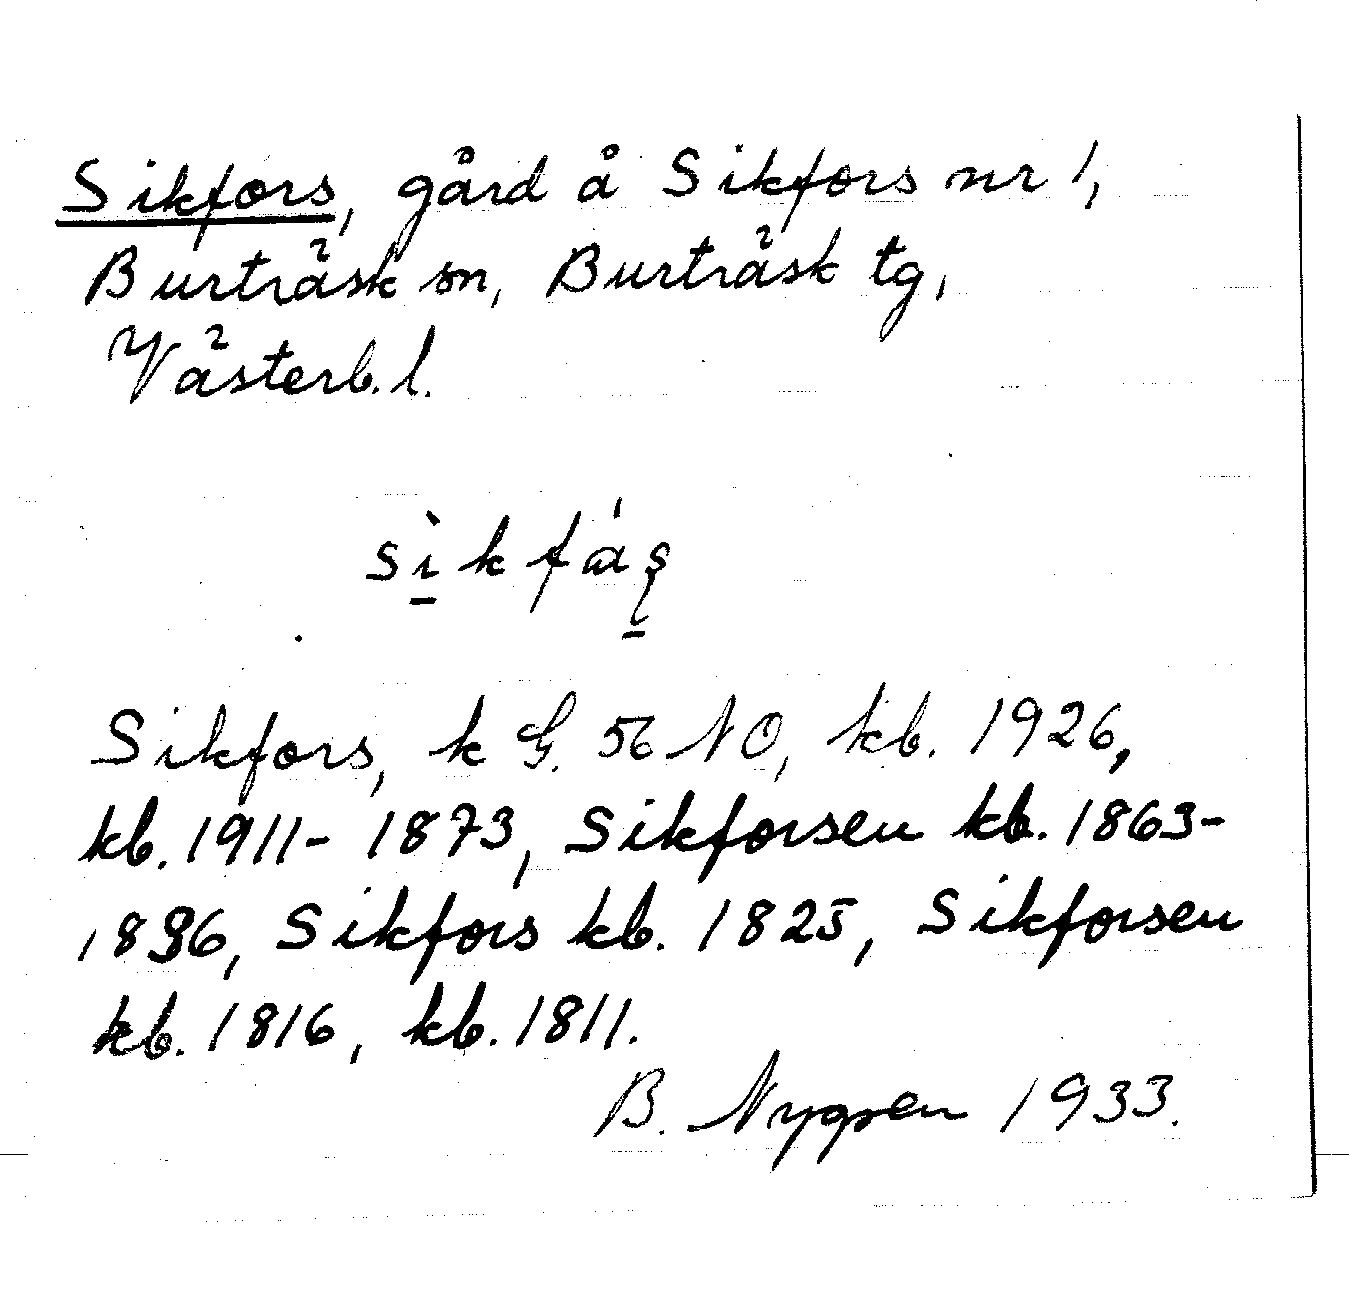 Sikfors, gård å Sikfors nr 1,
Burträsk sn, Burträsk tg,
Västerb. l.
sìkfáʂ
Sikfors, k G. 56 NO, kb. 1926,
kb. 1911- 1873, Sikforsen kb. 1863-
1836, Sikfors kb. 1825, Sikforsen
kb. 1816, kb. 1811.
B. Nygren 1933.